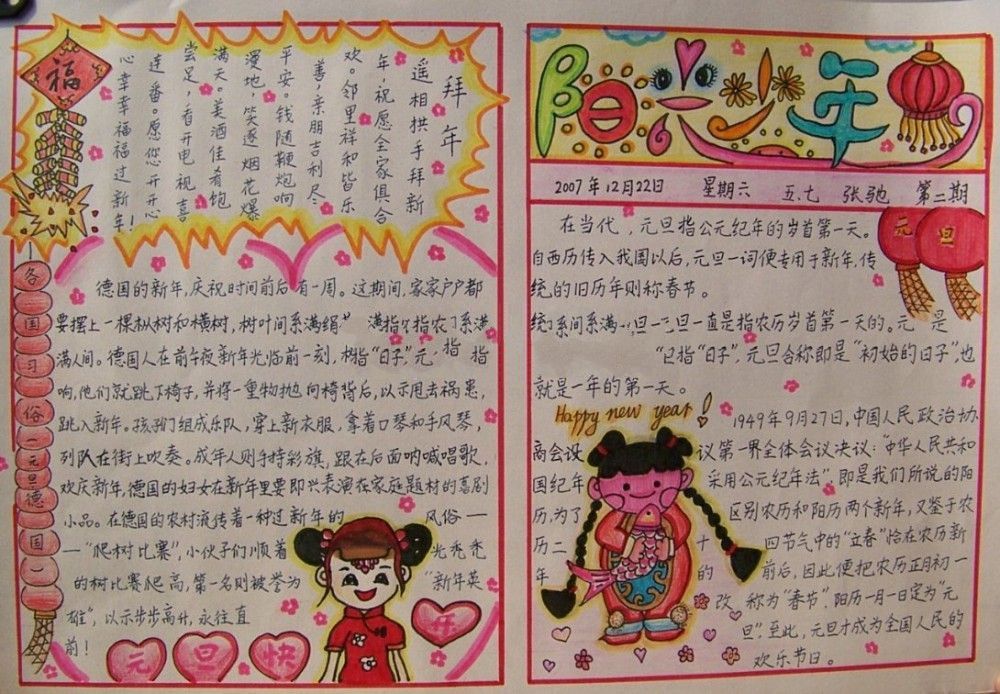 福
拜年
遥相拱手拜新
年,祝愿全家俱合
欢。邻里祥和皆乐
善,亲朋吉利尽
平安。钱随鞭炮响
漫地,笑逐烟花爆
满天。美酒佳肴饱
尝足,看开电视喜
连番。愿您开开心
心幸幸福福过新年!
各国习俗—元旦德国—
德国的新年,庆祝时间前后有一周。这期间,家家户户都
要摆上一棵枞树和横树,树叶间系满绢 满指 指农 系满
满人间。德国人在前午夜新年光临前一刻, 指“日子”元 指 指
响,他们就跳下椅子,并将一重物抛向椅背后,以示甩去祸患,
跳入新年。孩子们组成乐队,穿上新衣服,拿着口琴和手风琴,
列队在街上吹奏。成年人则手持彩旗,跟在后面呐喊唱歌,
欢庆新年,德国的妇女在新年里要即兴表演在家庭题材的喜剧
小品。在德国的农村流传着一种过新年的 风俗—
—“爬树比赛”,小伙子们顺着 光秃秃
的树比赛爬高,第一名则被誉为 “新年英
雄”,以示步步高升,永往直
前!
元旦快乐
阳光少年
2007年12月22日 星期六 五.七 张驰 第二期
元旦
在当代,元旦指公元纪年的岁首第一天。
自西历传入我国以后,元旦一词便专用于新年,传
统的旧历年则称春节。
统 系间系满 旦一 旦一直是指农历岁首第一天的。元 是
指“日子”,元旦合称即是“初始的日子”,也
就是一年的第一天。
Happy new year!
1949年9月27日,中国人民政治协
商会议 议第一界全体会议决议:“中华人民共和
国纪年 采用公元纪年法”。即是我们所说的阳
历,为了 区别农历和阳历两个新年,又鉴于农
历二 十 四节气中的“立春”恰在农历新
年 的 前后,因此便把农历正月初一
改 称为“春节”。阳历一月一日定为“元
旦”。至此,元旦才成为全国人民的
欢乐节日。